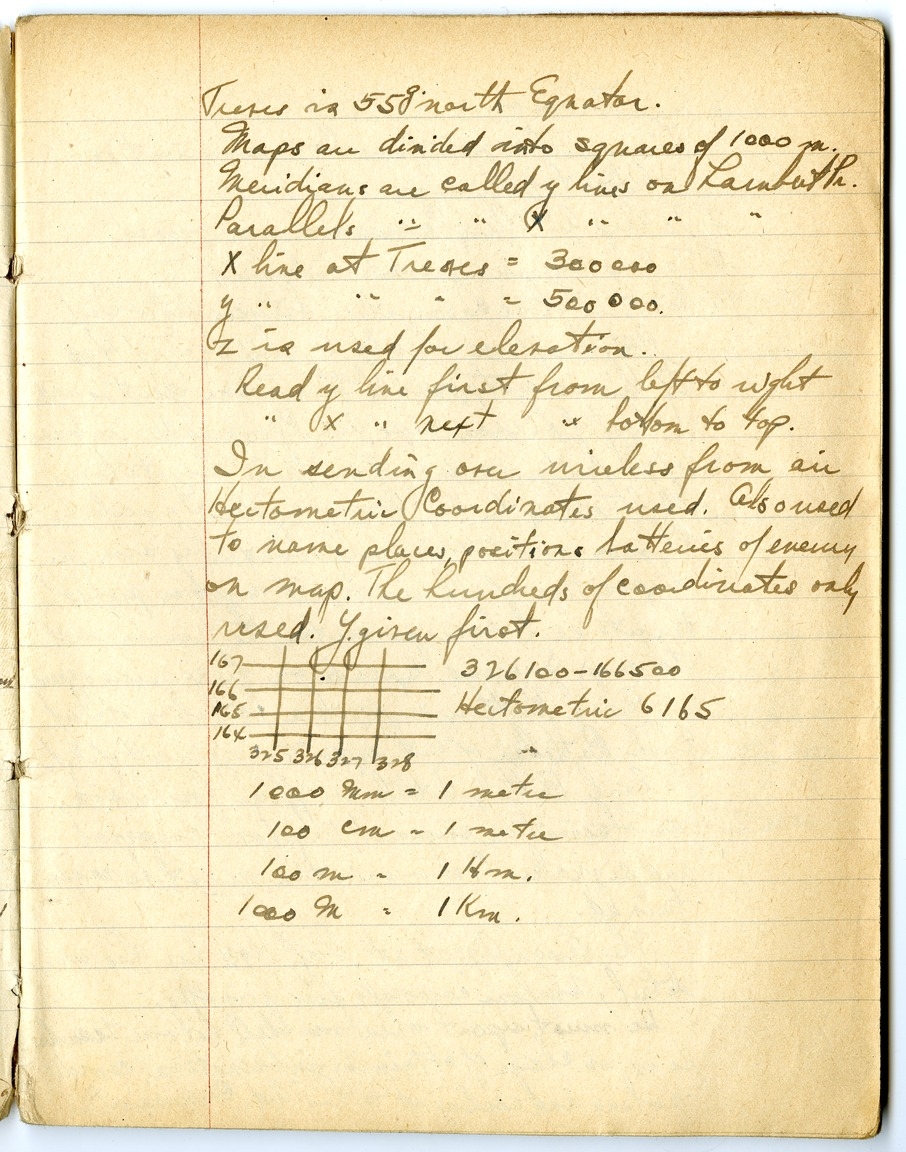 Treves is 55g north Equator.
Maps are divided into squares of 1000 m.
Meridians are called y lines on Lambert Pr.
Parallels " " " X " " "
X line at Treves = 300000
y " " " = 500000.
Z is used for elevation.
Read y line first from left to right
" X " next " bottom to top.
In sending over wireless from air
Hectometric Coordinates used. Also used
to name places, positions batteries of enemy
on map. The hundreds of coordinates only
used. Y given first.
167
166
165
164
325 326 327 328
326100-166500
Hectometric 6165
"
1000 Mm = 1 metre
100 cm = 1 metre
100 m = 1 Hm.
1000 M = 1 Km.